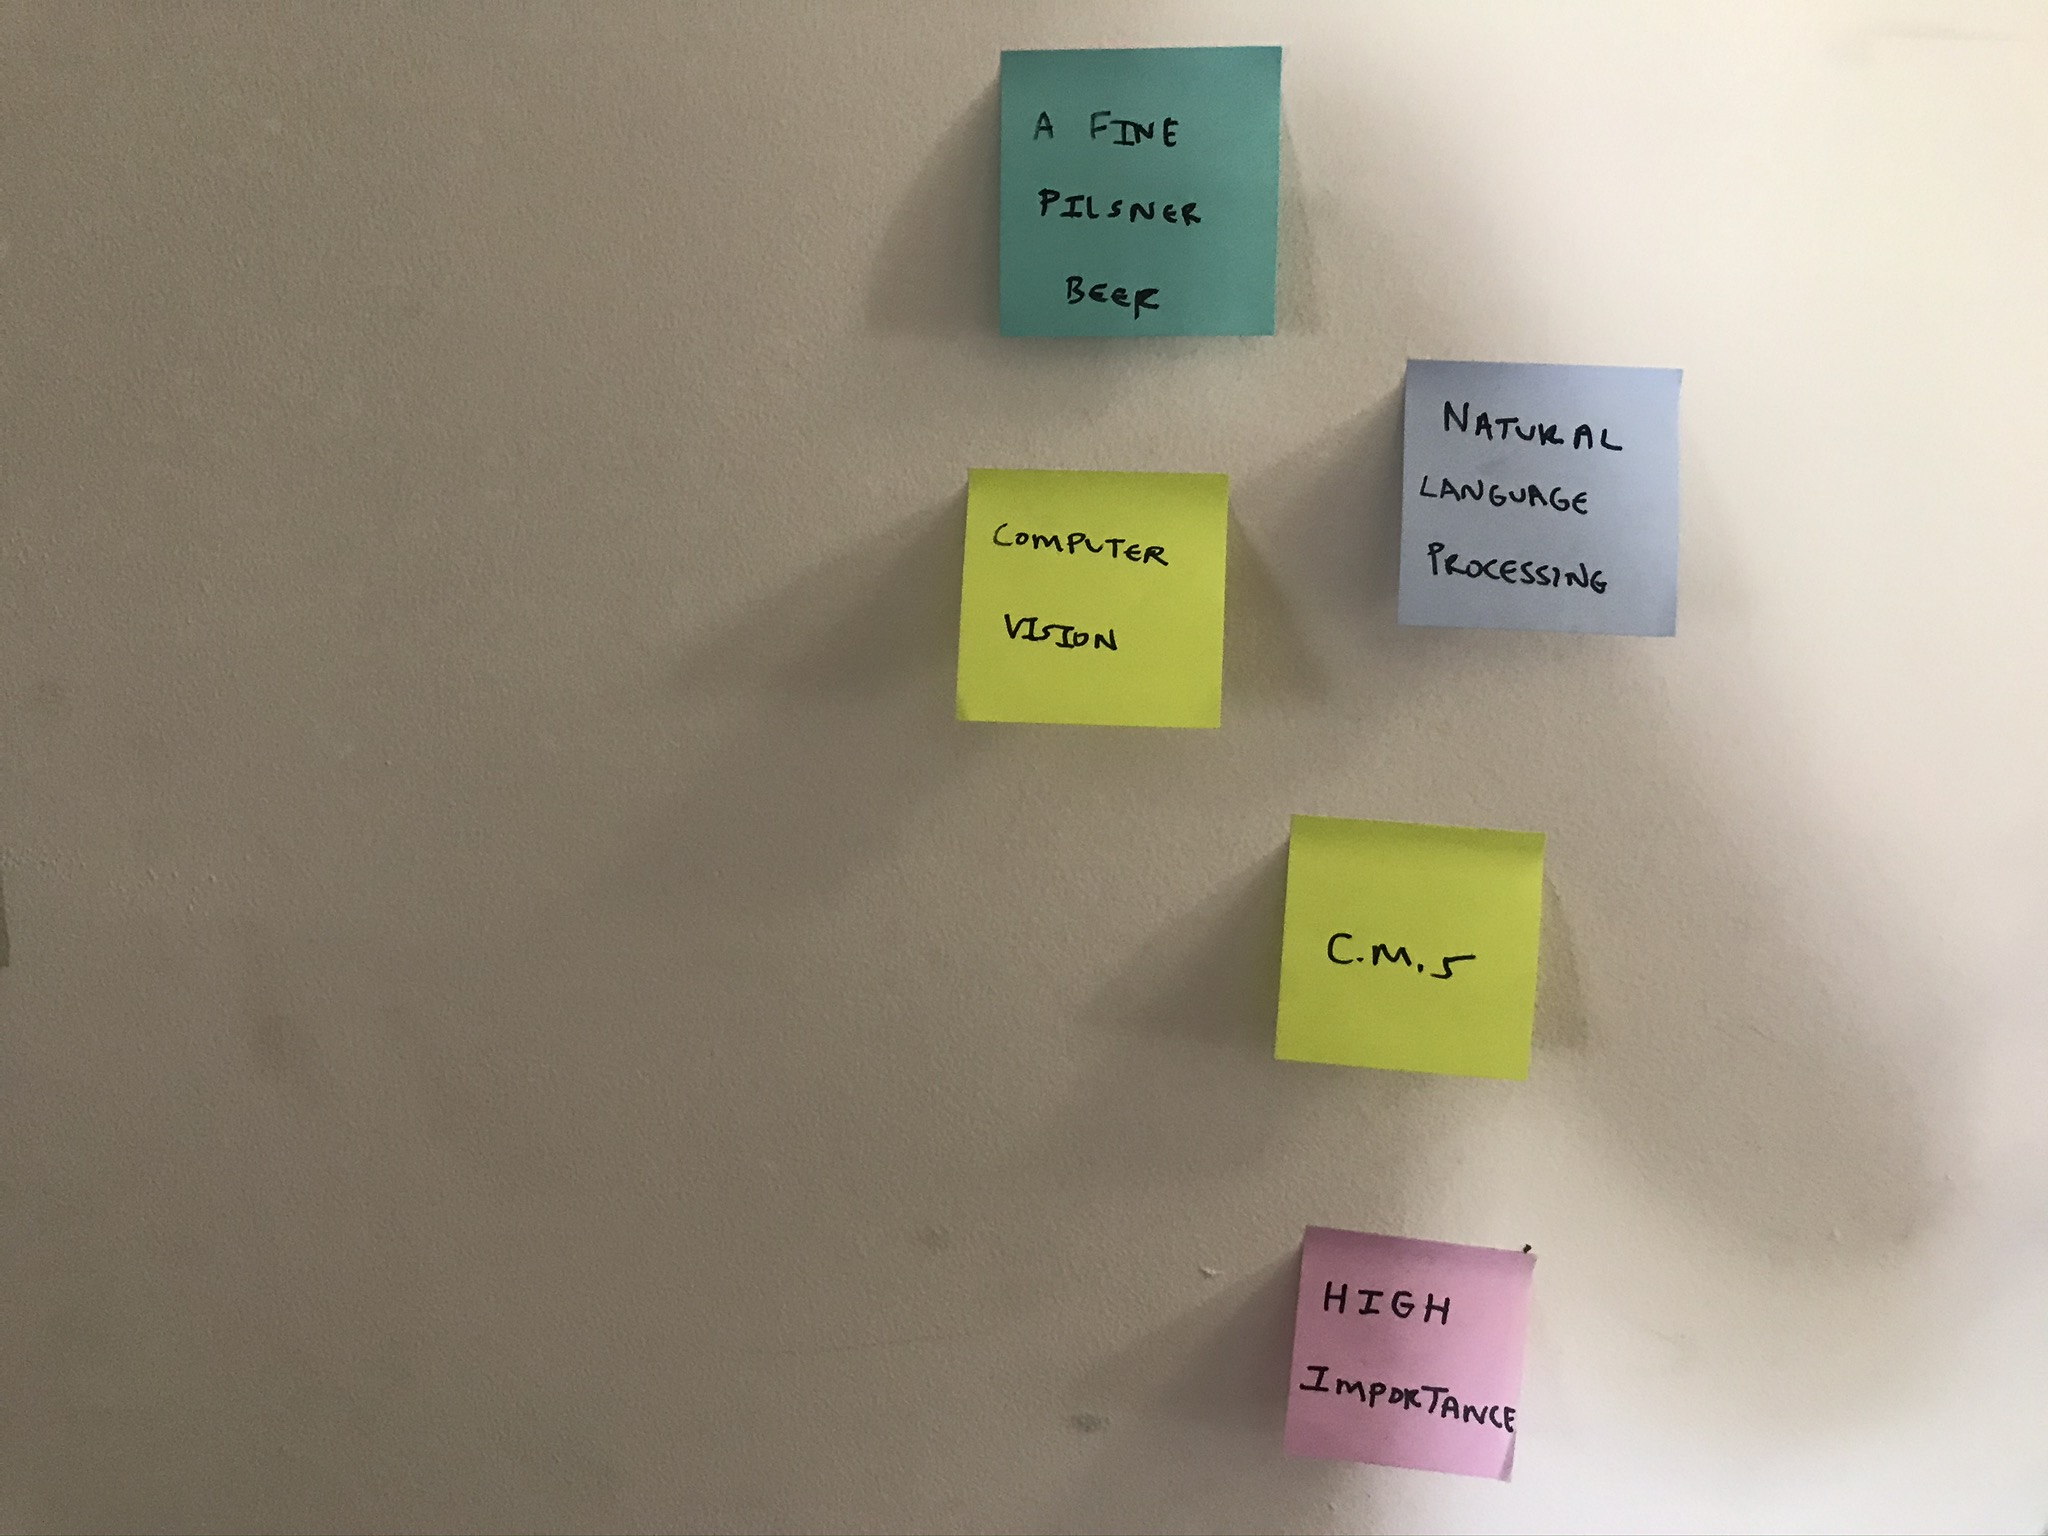 A FINE
PILSNER
BEER
NATURAL
LANGUAGE
PROCESSING
COMPUTER
VISION
C.M.S
HIGH
IMPORTANCE